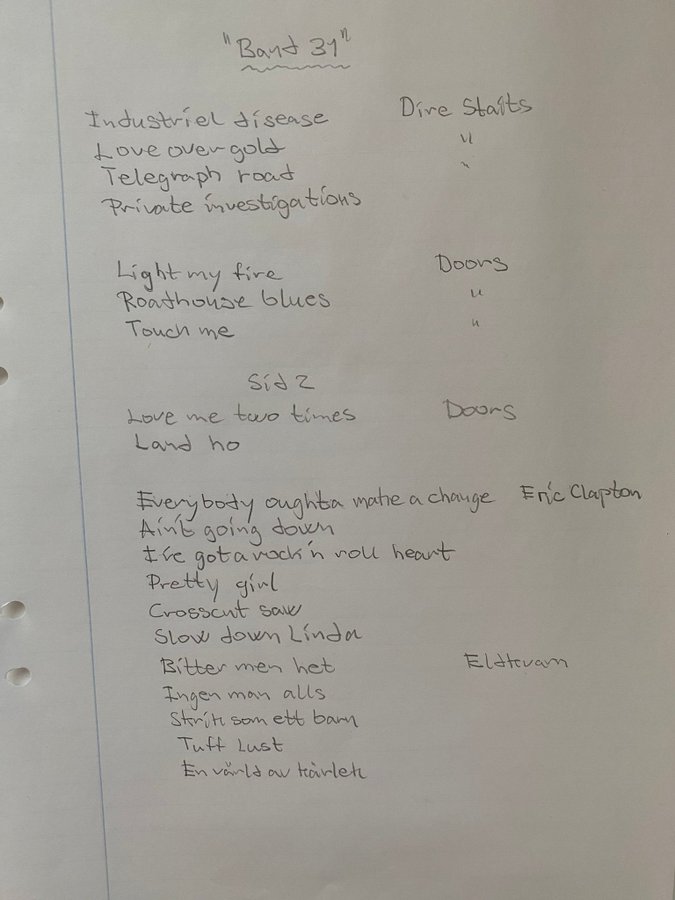 "Band 31"
Industriel disease Dire Staits
Love over gold "
Telegraph road "
Private investigations
Light my fire Doors
Roadhouse blues "
Touch me "
Sid 2
Love me two times Doors
Land ho
Everybody oughta make a change Eric Clapton
Ain't going down
I've got a rock'n roll heart
Pretty girl
Crosscut saw
Slow down Linda
Bitter men het Eldkvarn
Ingen man alls
Skrik som ett barn
Tuff Lust
En värld av kärlek